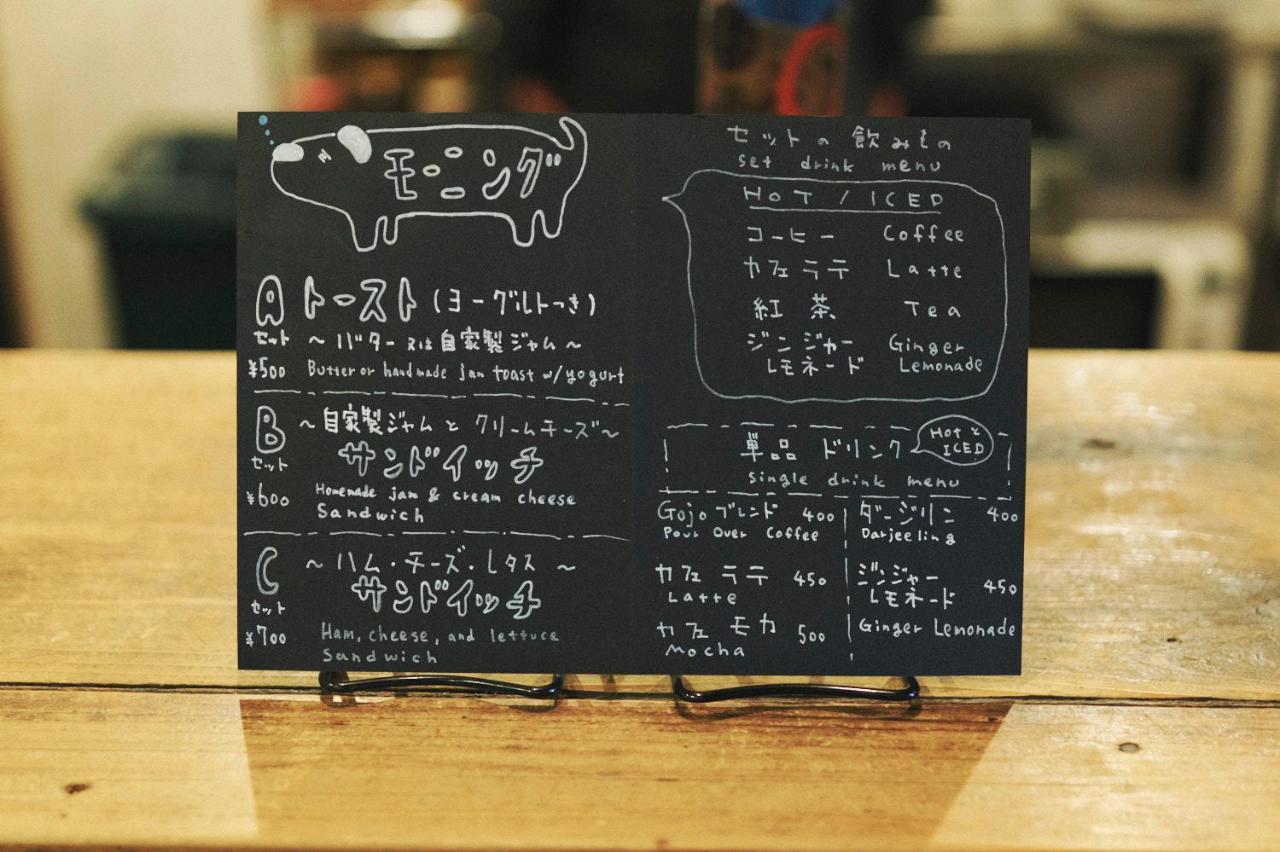 モーニング
A トースト (ヨーグルトつき)
セット ～バター 又は 自家製ジャム～
¥500 Butter or handmade jam toast w/yogurt
B ～自家製ジャム と クリームチーズ～
セット サンドイッチ
¥600 Homemade jam & cream cheese
Sandwich
C ～ハム・チーズ・レタス～
セット サンドイッチ
¥700 Ham, cheese, and lettuce
Sandwich
セットの飲みもの
set drink menu
HOT / ICED
コーヒー Coffee
カフェラテ Latte
紅茶 Tea
ジンジャー Ginger
レモネード Lemonade
単品 ドリンク
HOT と
ICED
single drink menu
Gojo ブレンド 400
Pour Over Coffee
カフェ ラテ 450
Latte
カフェ モカ 500
Mocha
ダージリン 400
Darjeeling
ジンジャー
レモネード 450
Ginger Lemonade